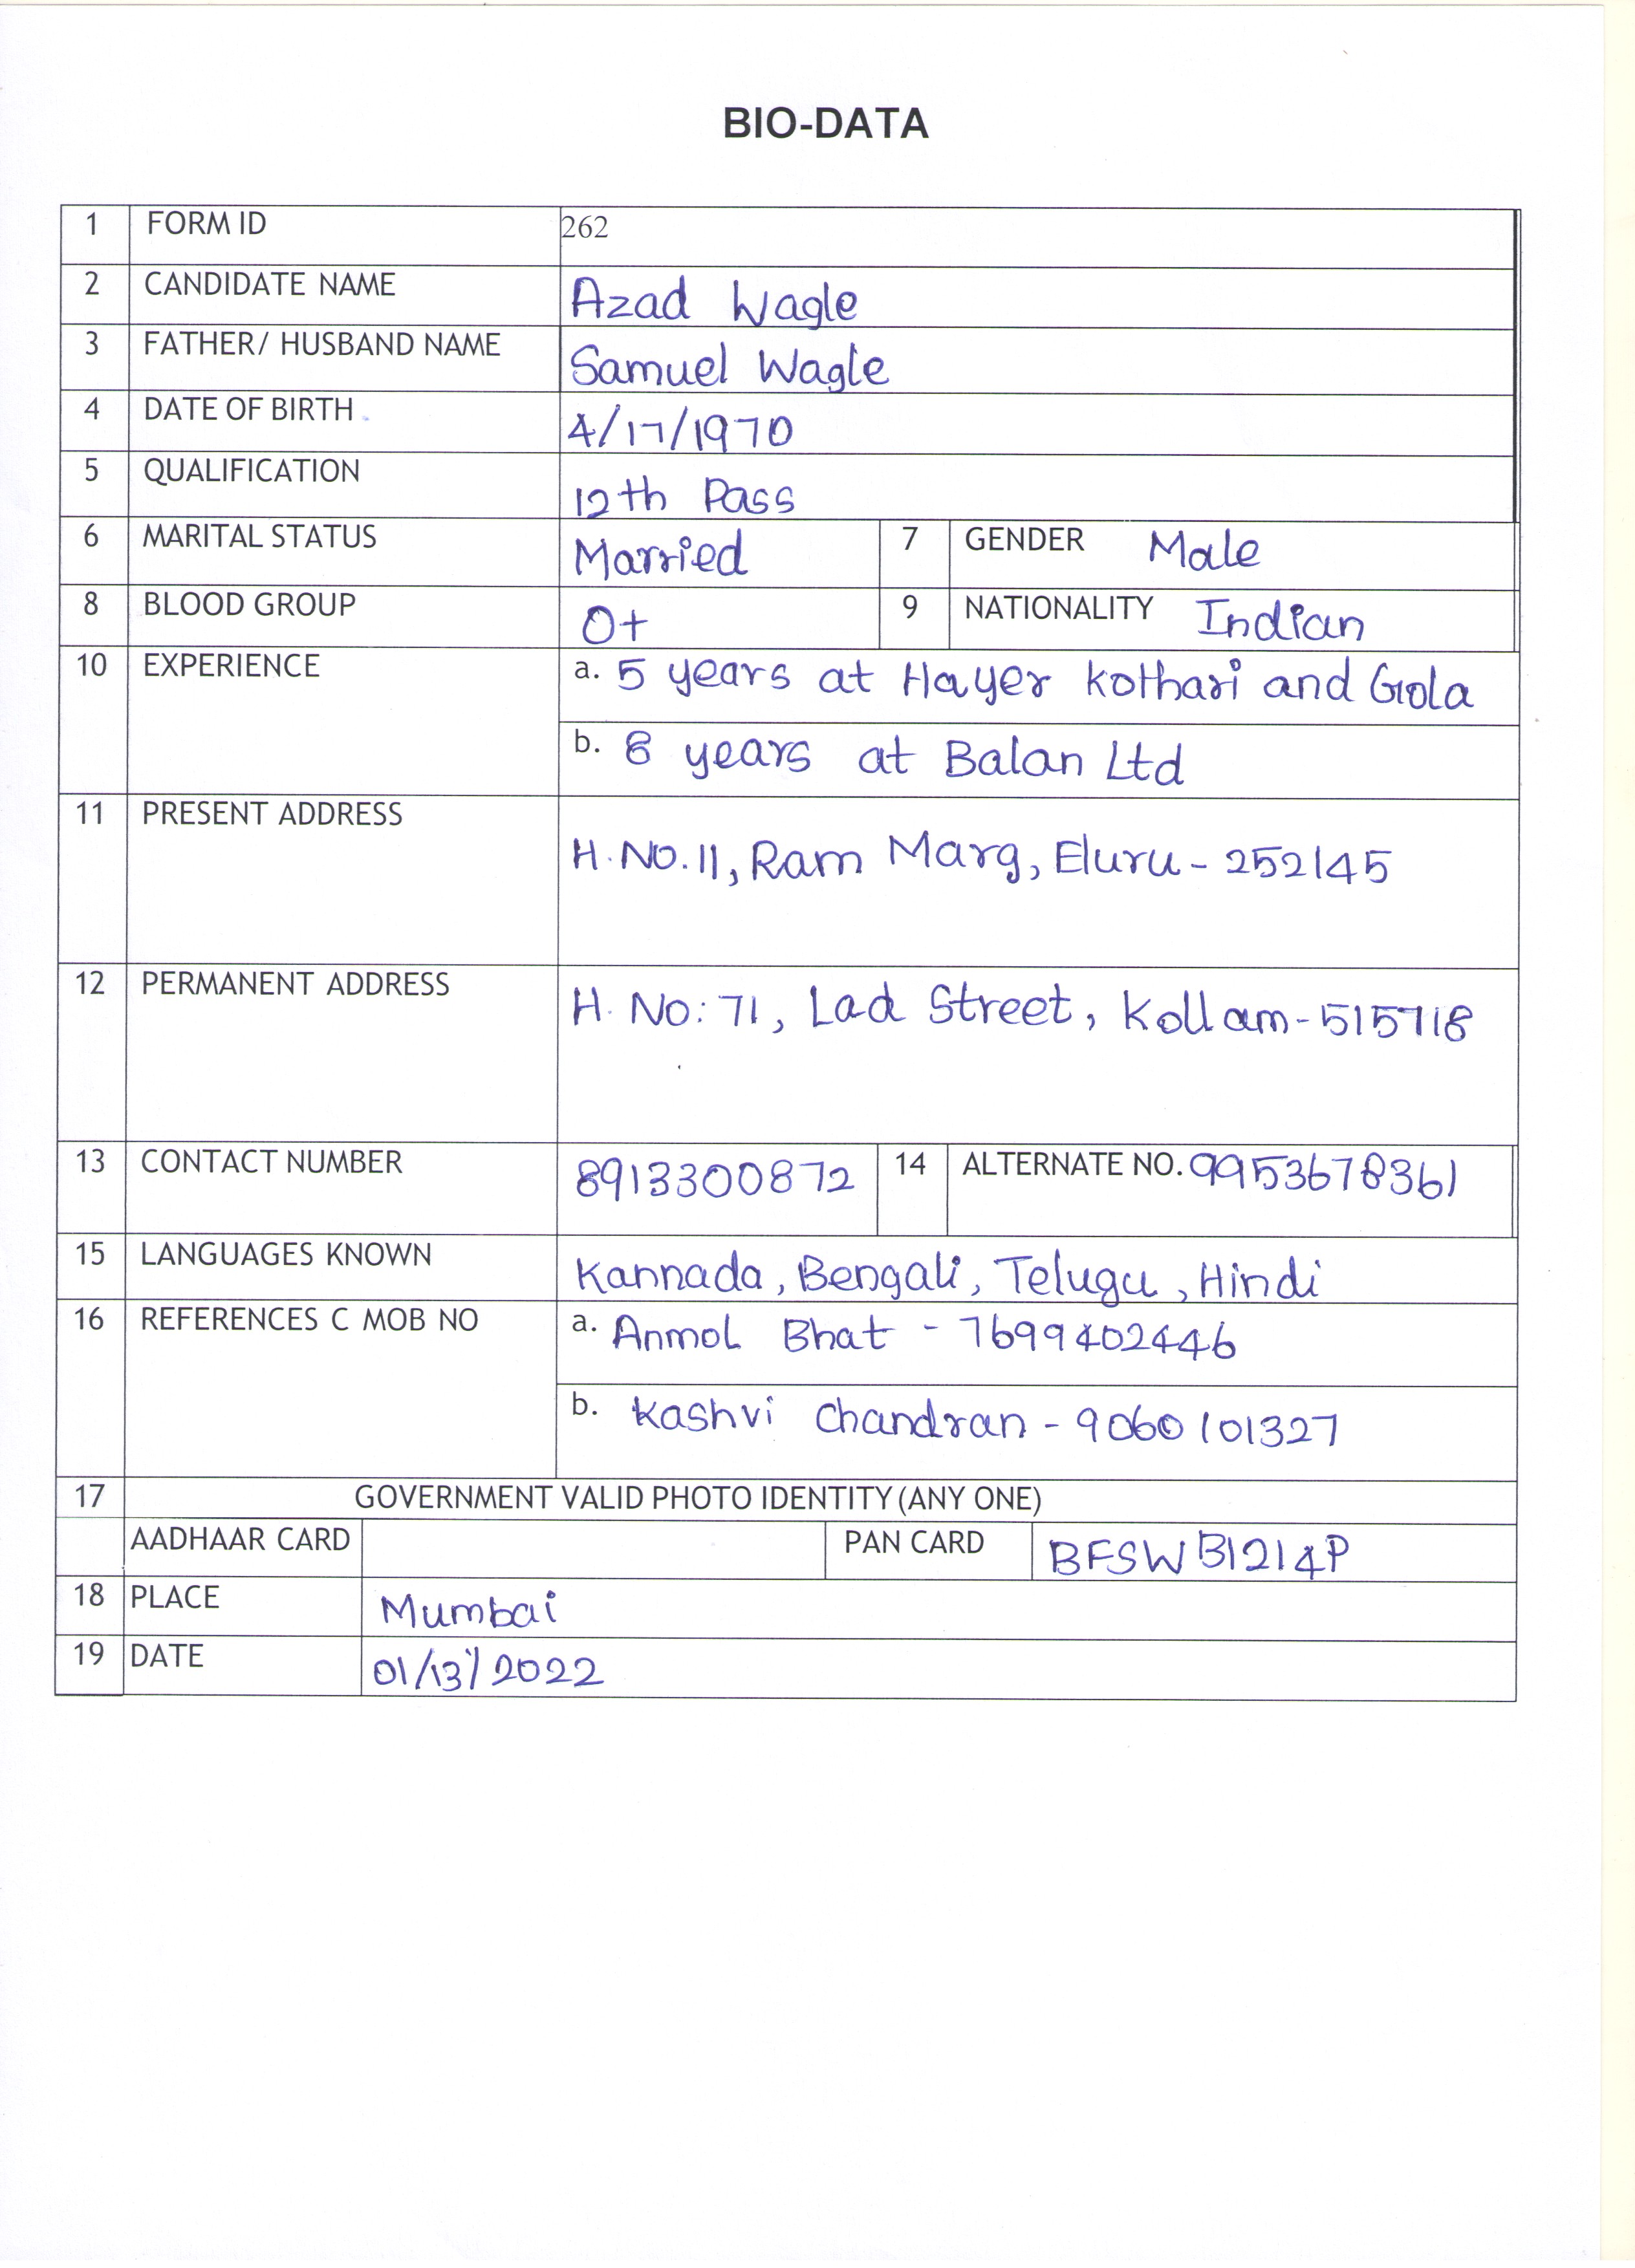 BIO-DATA
1 FORM ID 262
2 CANDIDATE NAME Azad Wagle
3 FATHER/ HUSBAND NAME Samuel Wagle
4 DATE OF BIRTH 4/17/1970
5 QUALIFICATION 12th Pass
6 MARITAL STATUS Married 7 GENDER Male
8 BLOOD GROUP O+ 9 NATIONALITY Indian
10 EXPERIENCE a. 5 years at Hayer Kothari and Gola
b. 8 years at Balan Ltd
11 PRESENT ADDRESS
H.No.11, Ram Marg, Eluru - 252145
12 PERMANENT ADDRESS H. No: 71, Lad Street, Kollam - 515718
13 CONTACT NUMBER 8913300872 14 ALTERNATE NO. 9953678361
15 LANGUAGES KNOWN Kannada, Bengali, Telugu, Hindi
16 REFERENCES C MOB NO a. Anmol Bhat - 7699402446
b. Kashvi Chandran - 9060101327
17 GOVERNMENT VALID PHOTO IDENTITY (ANY ONE)
AADHAAR CARD PAN CARD BFSWB1214P
18 PLACE Mumbai
19 DATE 01/13/2022